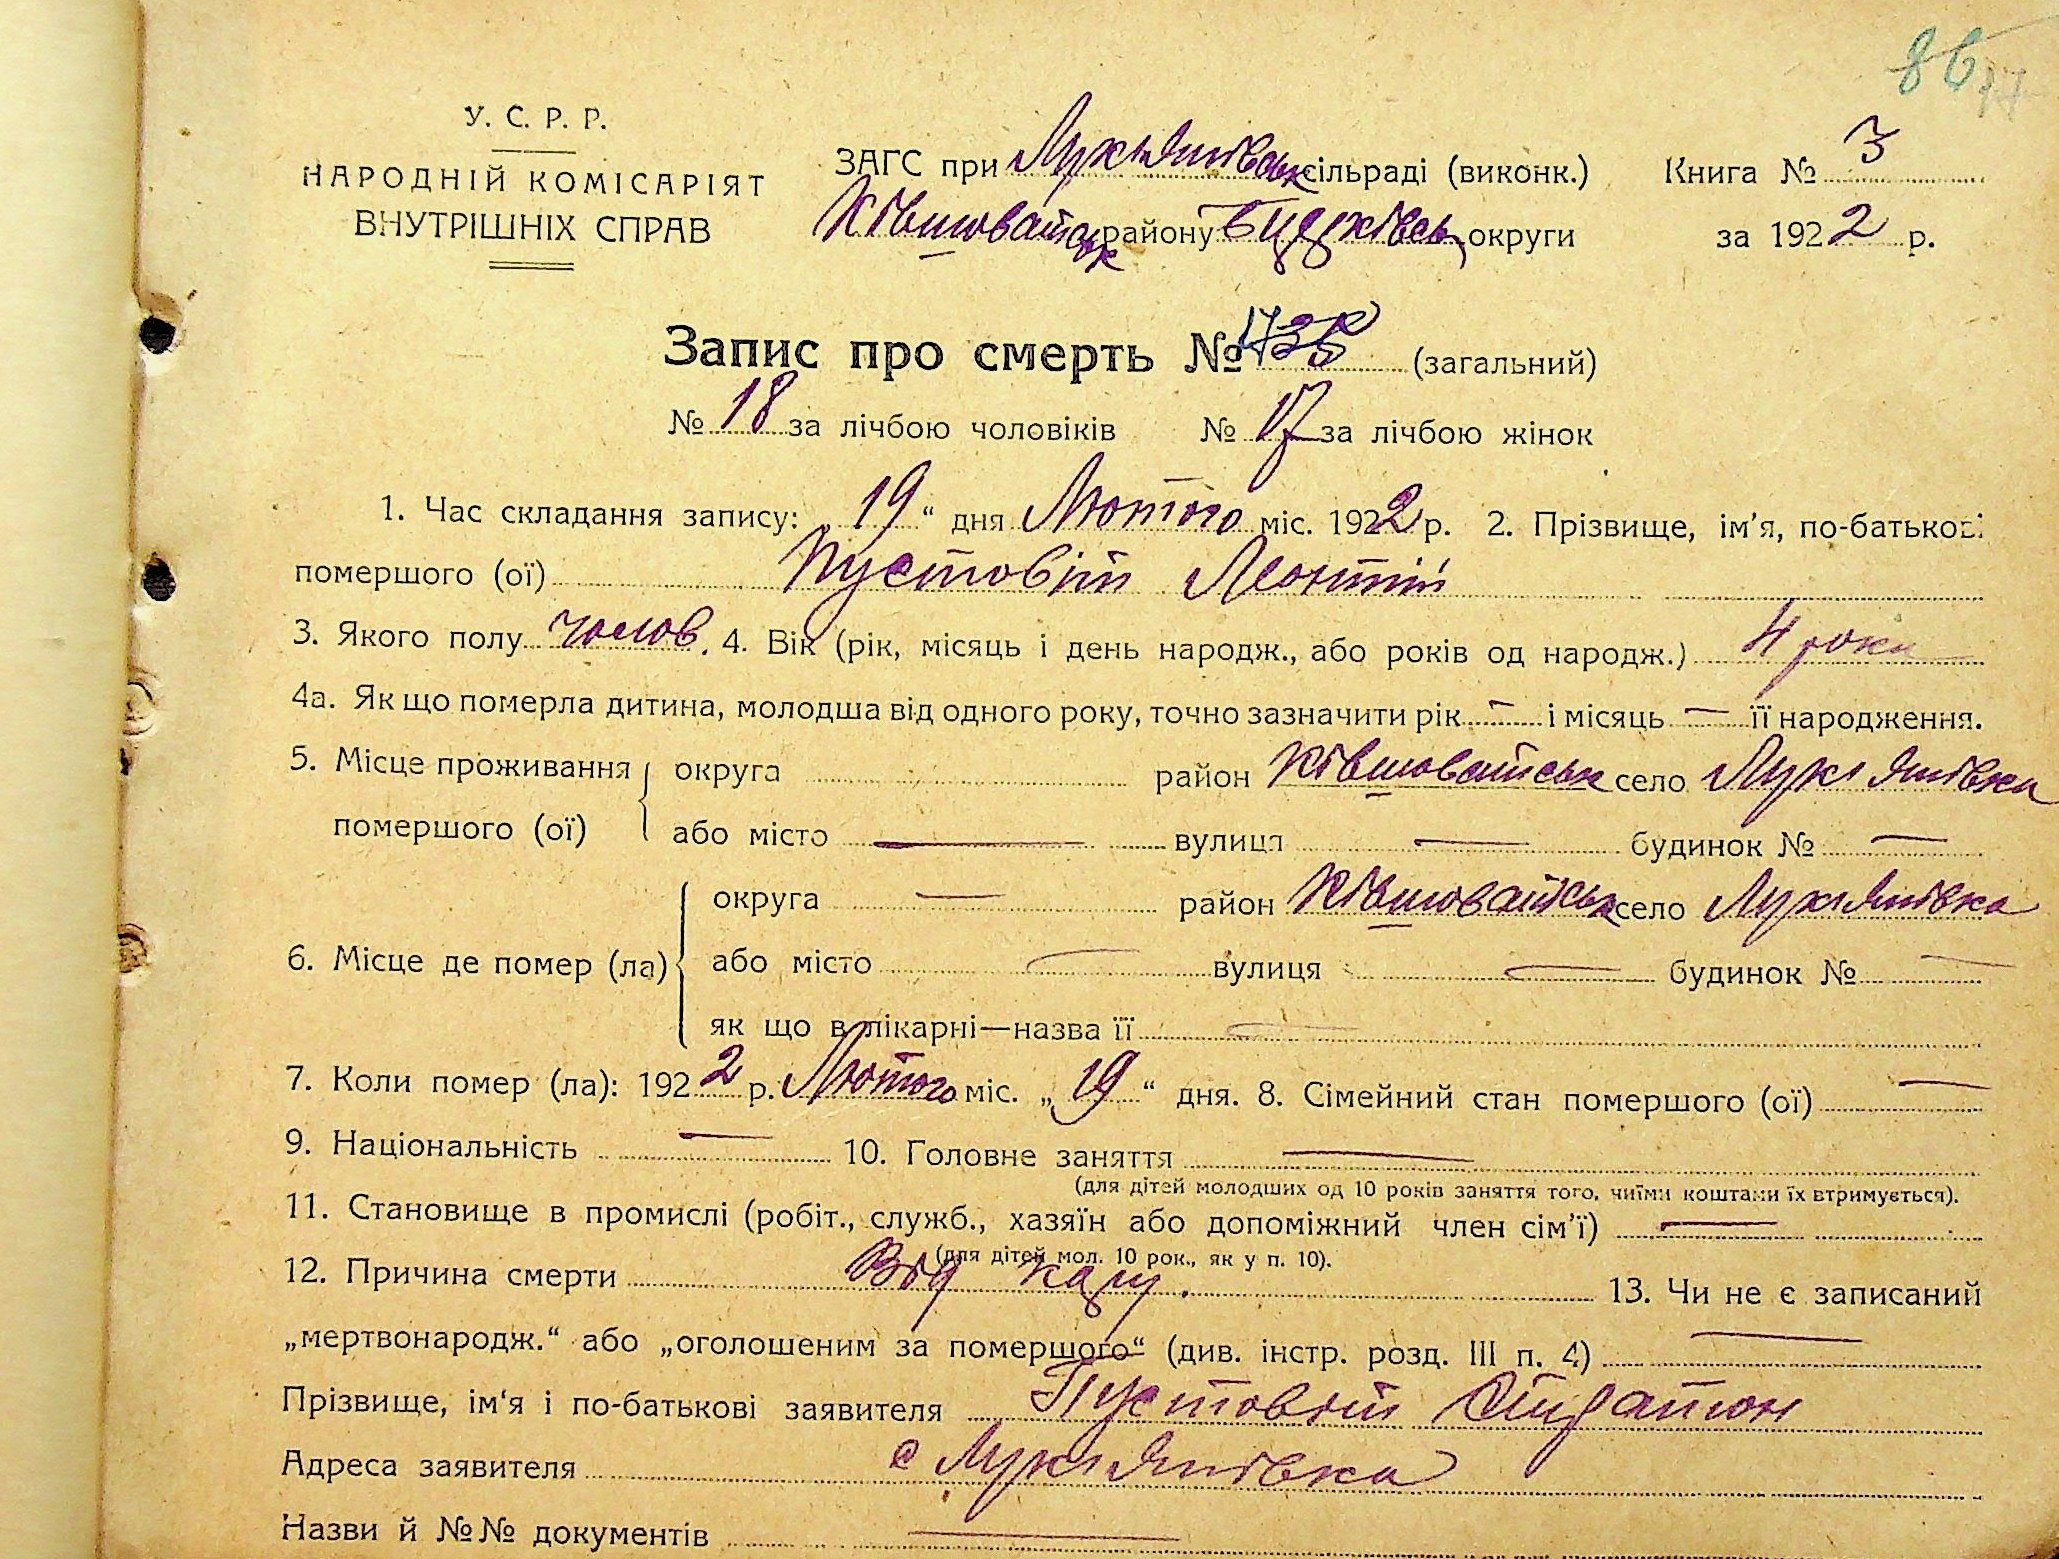 86
У. С. Р. Р.
НАРОДНІЙ КОМІСАРІЯТ
ВНУТРІШНІХ СПРАВ
ЗАГС при Лукіянівськ сільраді (виконк.) Книга № 3
Ківшоватськ району Білоцерківськ округи за 1922 р.
Запис про смерть № 35 (загальний)
№ 18 за лічбою чоловіків № 17 за лічбою жінок
1. Час складання запису: „19“ дня Лютого міс. 1922 р. 2. Прізвище, ім'я, по-батькові
помершого (ої) Пустовіт Леонтій
3. Якого полу чолов. 4. Вік (рік, місяць і день народж., або років од народж.) 4 роки
4а. Як що померла дитина, молодша від одного року, точно зазначити рік – і місяць – її народження.
5. Місце проживання округа район Ківшоватськ село Лукіянівка
помершого (ої) або місто — вулиця — будинок № —
округа — район Ківшоватськ село Лукіянівка
6. Місце де помер (ла) або місто — вулиця — будинок № —
як що в лікарні—назва її —
7. Коли помер (ла): 1922 р. Лютого міс. „19“ дня. 8. Сімейний стан помершого (ої) —
9. Національність — 10. Головне заняття —
(для дітей молодших од 10 років заняття того, чиїми коштами їх втримується).
11. Становище в промислі (робіт., служб., хазяїн або допоміжний член сім'ї) —
(для дітей мол. 10 рок., як у п. 10).
12. Причина смерти Від кашлу. 13. Чи не є записаний
„мертвонародж.“ або „оголошеним за помершого“ (див. інстр. розд. III п. 4) —
Прізвище, ім'я і по-батькові заявителя Пустовіт
Адреса заявителя с Лукіянівка
Назви й №№ документів —